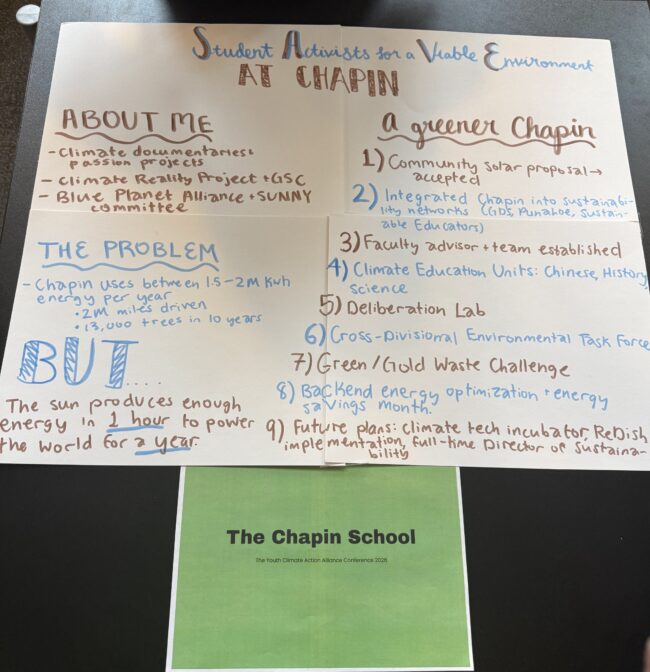 Student Activists for a Viable Environment
AT CHAPIN
ABOUT ME
- Climate documentaries +
passion projects
- Climate Reality Project + GSC
- Blue Planet Alliance + SUNNY
committee
THE PROBLEM
- Chapin uses between 1.5-2M Kwh
energy per year
• 2M miles driven
• 13,000 trees in 10 years
BUT....
The sun produces enough
energy in 1 hour to power
the world for a year.
a greener Chapin
1) Community solar proposal →
accepted
2) Integrated Chapin into sustainabi-
lity networks (GDS, Punahoe, Sustain-
able Educators)
3) Faculty advisor + team established
4) Climate Education Units: Chinese, History,
science
5) Deliberation Lab
6) Cross-Divisional Environmental Task Force
7) Green/Gold Waste Challenge
8) Backend energy optimization + energy
savings month.
9) Future plans: climate tech incubator, ReDish
implementation, full-time Director of Sustaina-
bility
The Chapin School
The Youth Climate Action Alliance Conference 2026